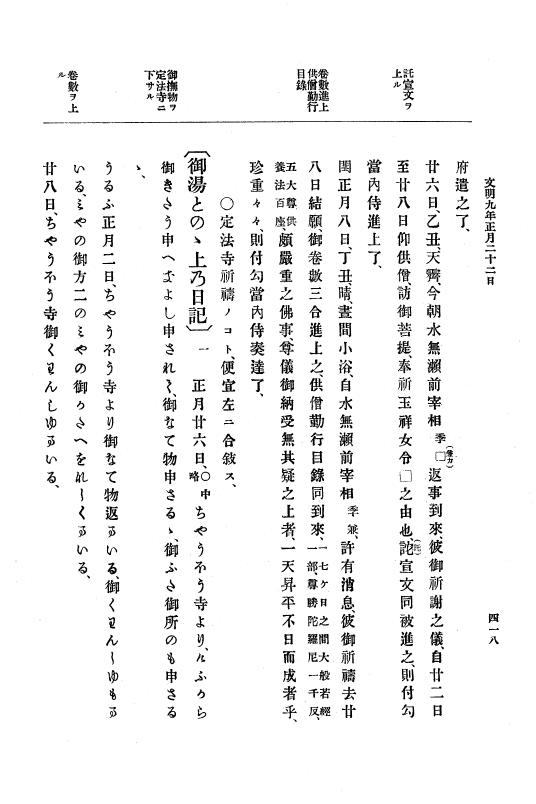 文明九年正月二十二日
四一八
託宣文ヲ
上ル
卷數進上
供僧勤行
目錄
御撫物ヲ
定法寺ニ
下サル
卷數ヲ上
ル
府遣之了、
廿六日、乙丑、天霽、今朝水無瀨前宰相季□(兼カ)返事到來、彼御祈謝之儀、自廿二日
至廿八日仰供僧、訪御菩提、奉祈玉祥女令□之由也、詑(託)宣文同被進之、則付勾
當內侍進上了、
閏正月八日、丁丑、晴、晝間小浴、自水無瀨前宰相季兼、許有消息、彼御祈禱去廿
八日結願、御卷數三合進上之、供僧勤行目錄同到來、一七ケ日之間大般若經
一部、尊勝陀羅尼一千反、
五大尊供
養法百座、頗嚴重之佛事、尊儀御納受無其疑之上者、一天昇平不日而成者乎、
珍重々々、則付勾當內侍奏達了、
○定法寺祈禱ノコト、便宜左ニ合敍ス、
〔御湯とのゝ上乃日記〕一 正月廿六日、○中略ちやうふう寺より、にふうら
御きたう申へきよし申されく、御なて物申さるゝ、御ふた御所のも申さる
ゝ、
うるふ正月二日、ちやうふう寺より御なて物返まいる、御くわんしゆもま
いる、みやの御方二のみやの御かたへをれしくまいる、
廿八日、ちやうふう寺御くわんしゆまいる、